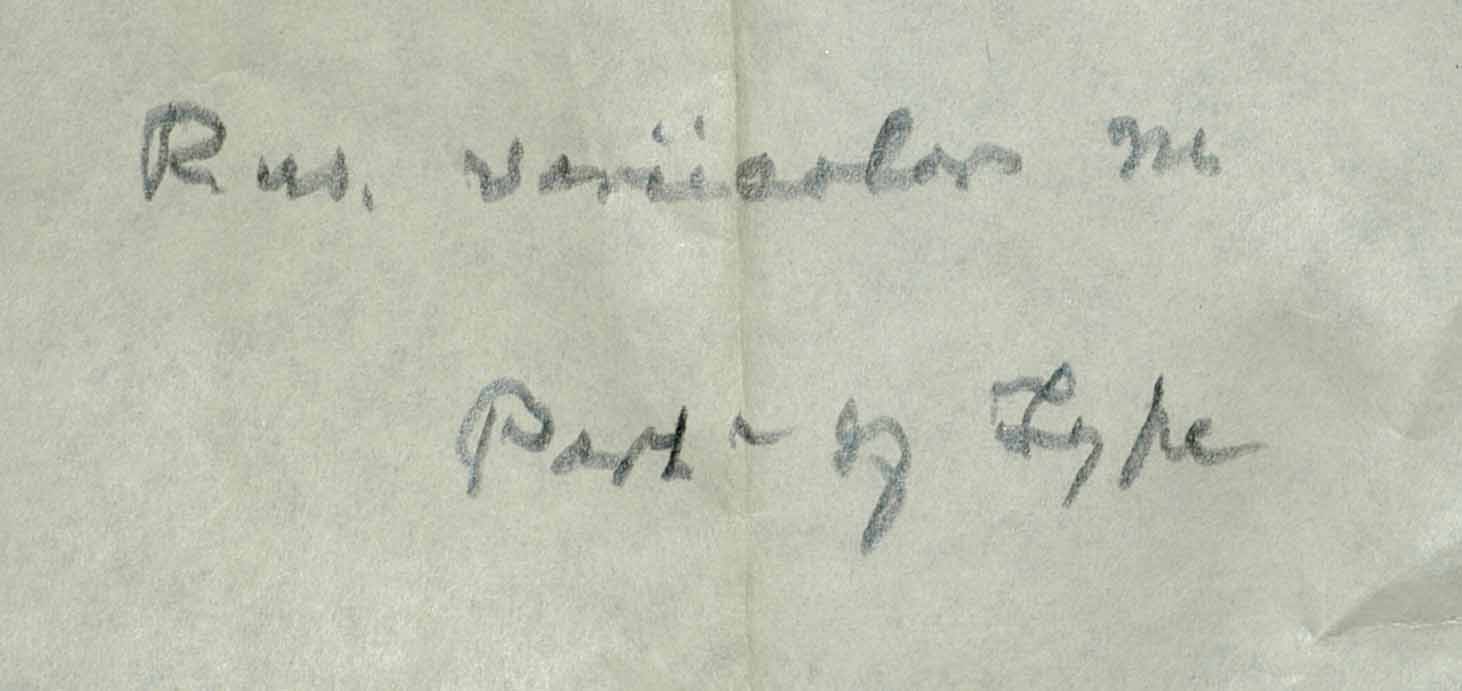 Rus. variicolor M
Part - of Type